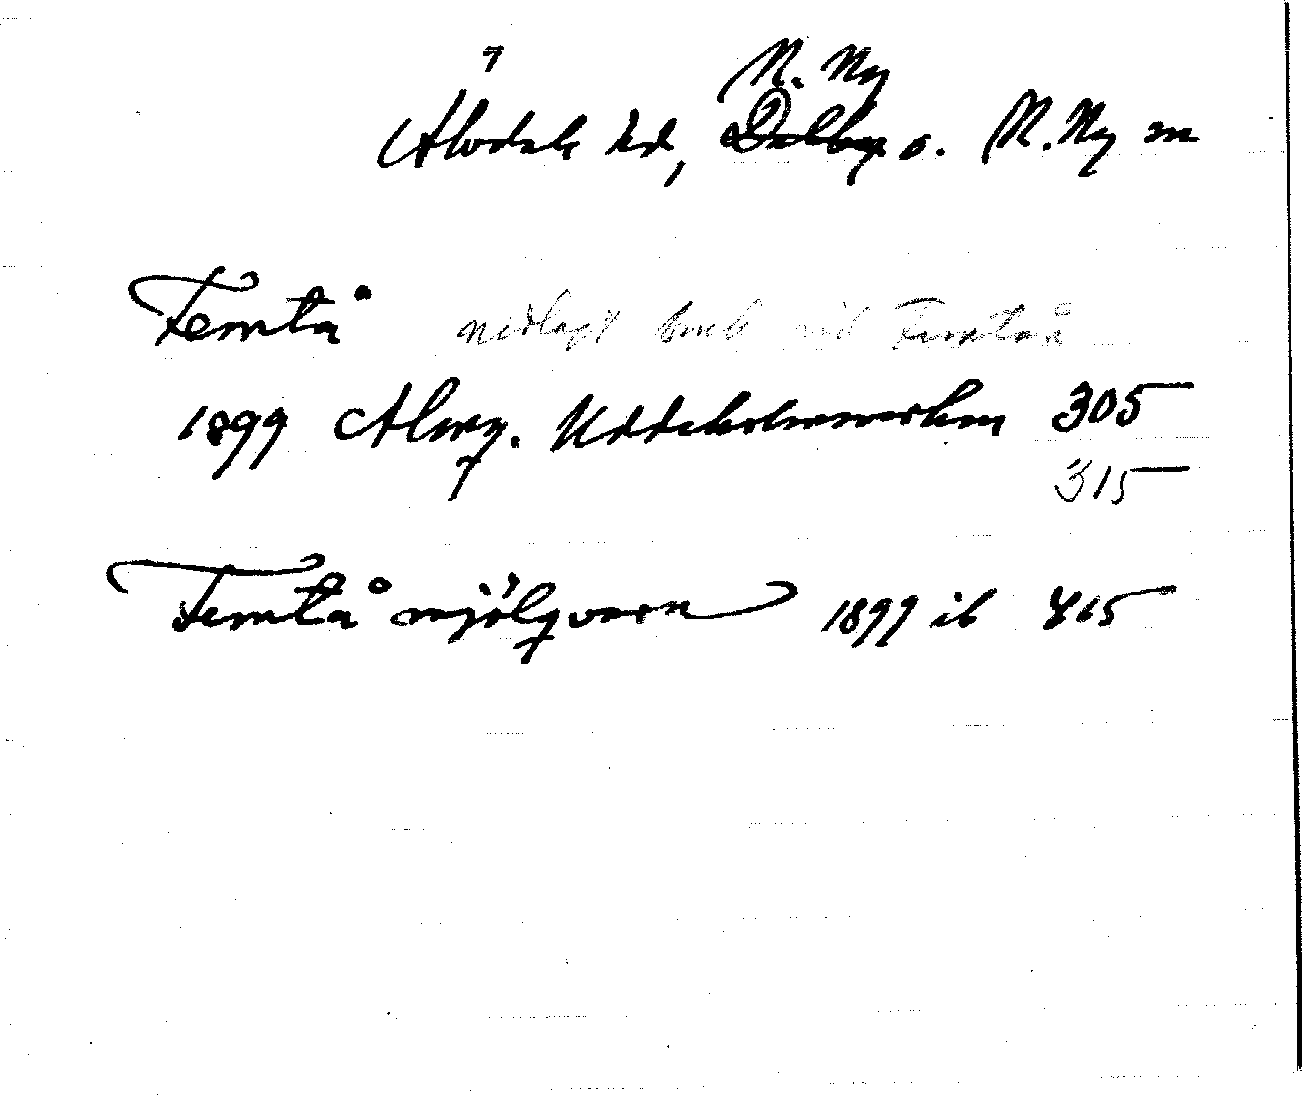 N. Ny
Älvdals hd, Dalby s. N. Ny sn
Femtå nedlagt bruk vid Femtån
1899 Almq. Uddeholmsverken 305
315
Femtå mjölqvarn 1899 ib 465